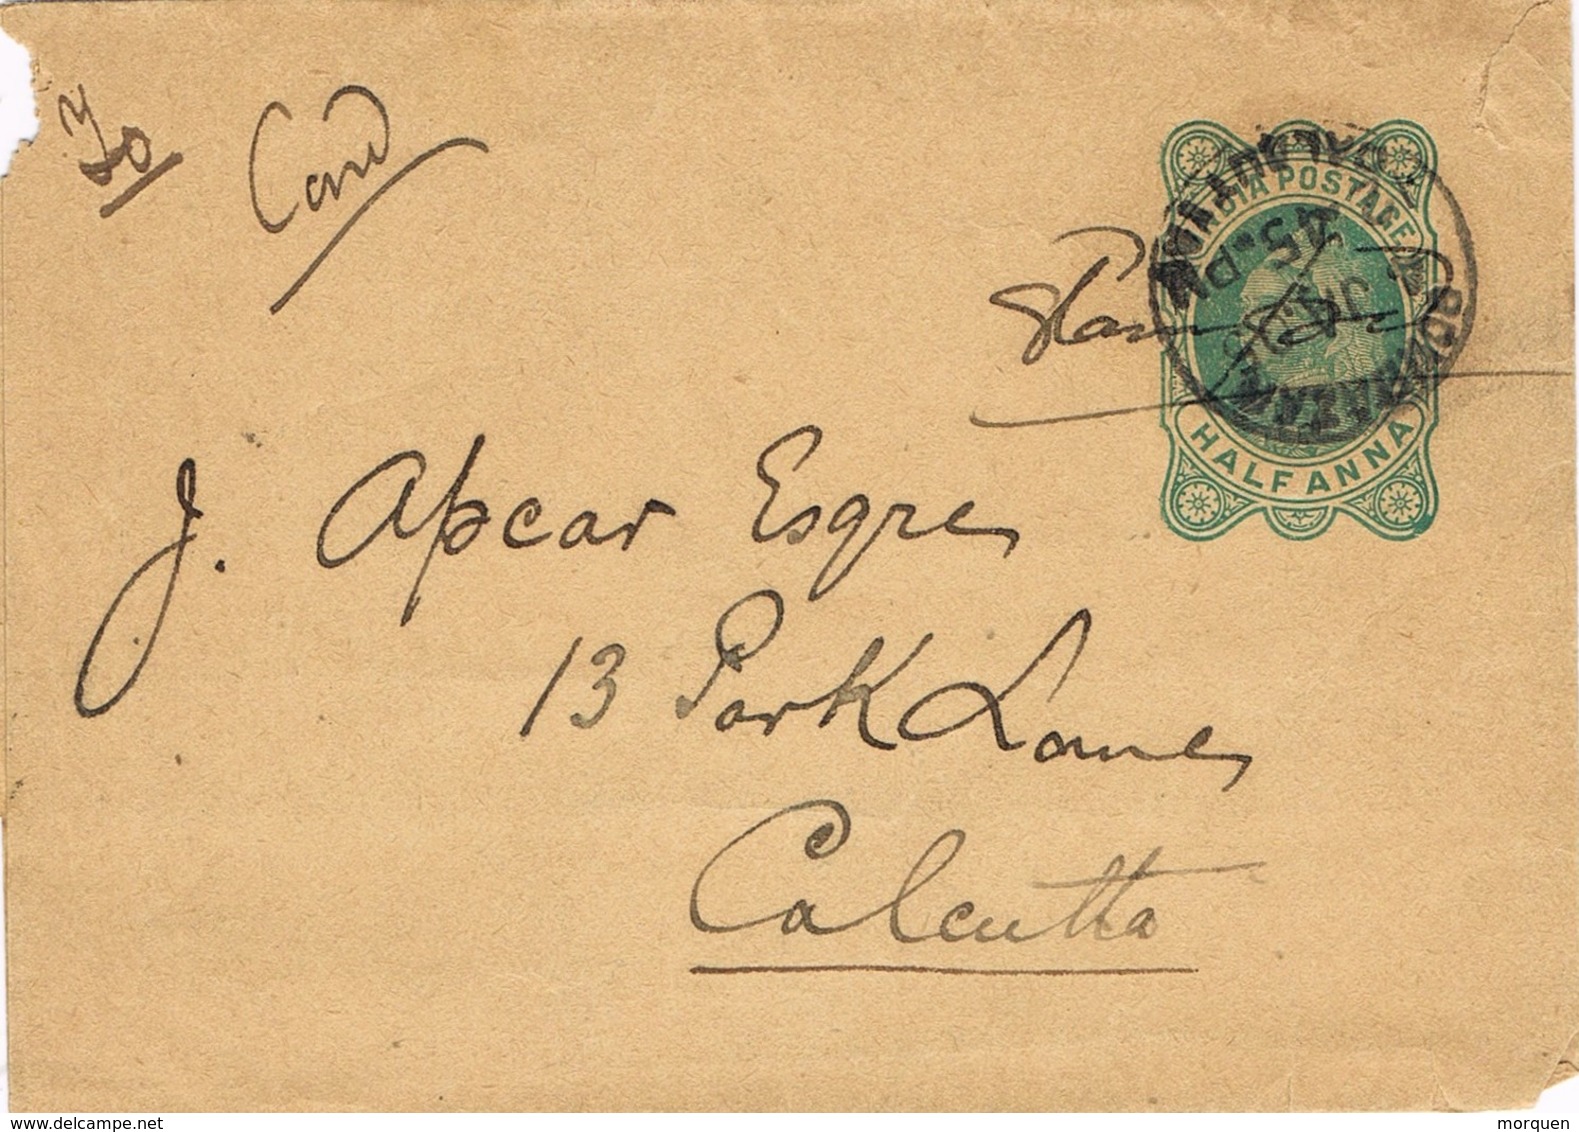 To Card
INDIA POSTAGE
HALF ANNA
J. Apcar Esqre
13 Park Lane
Calcutta
www.delcampe.net
morquen